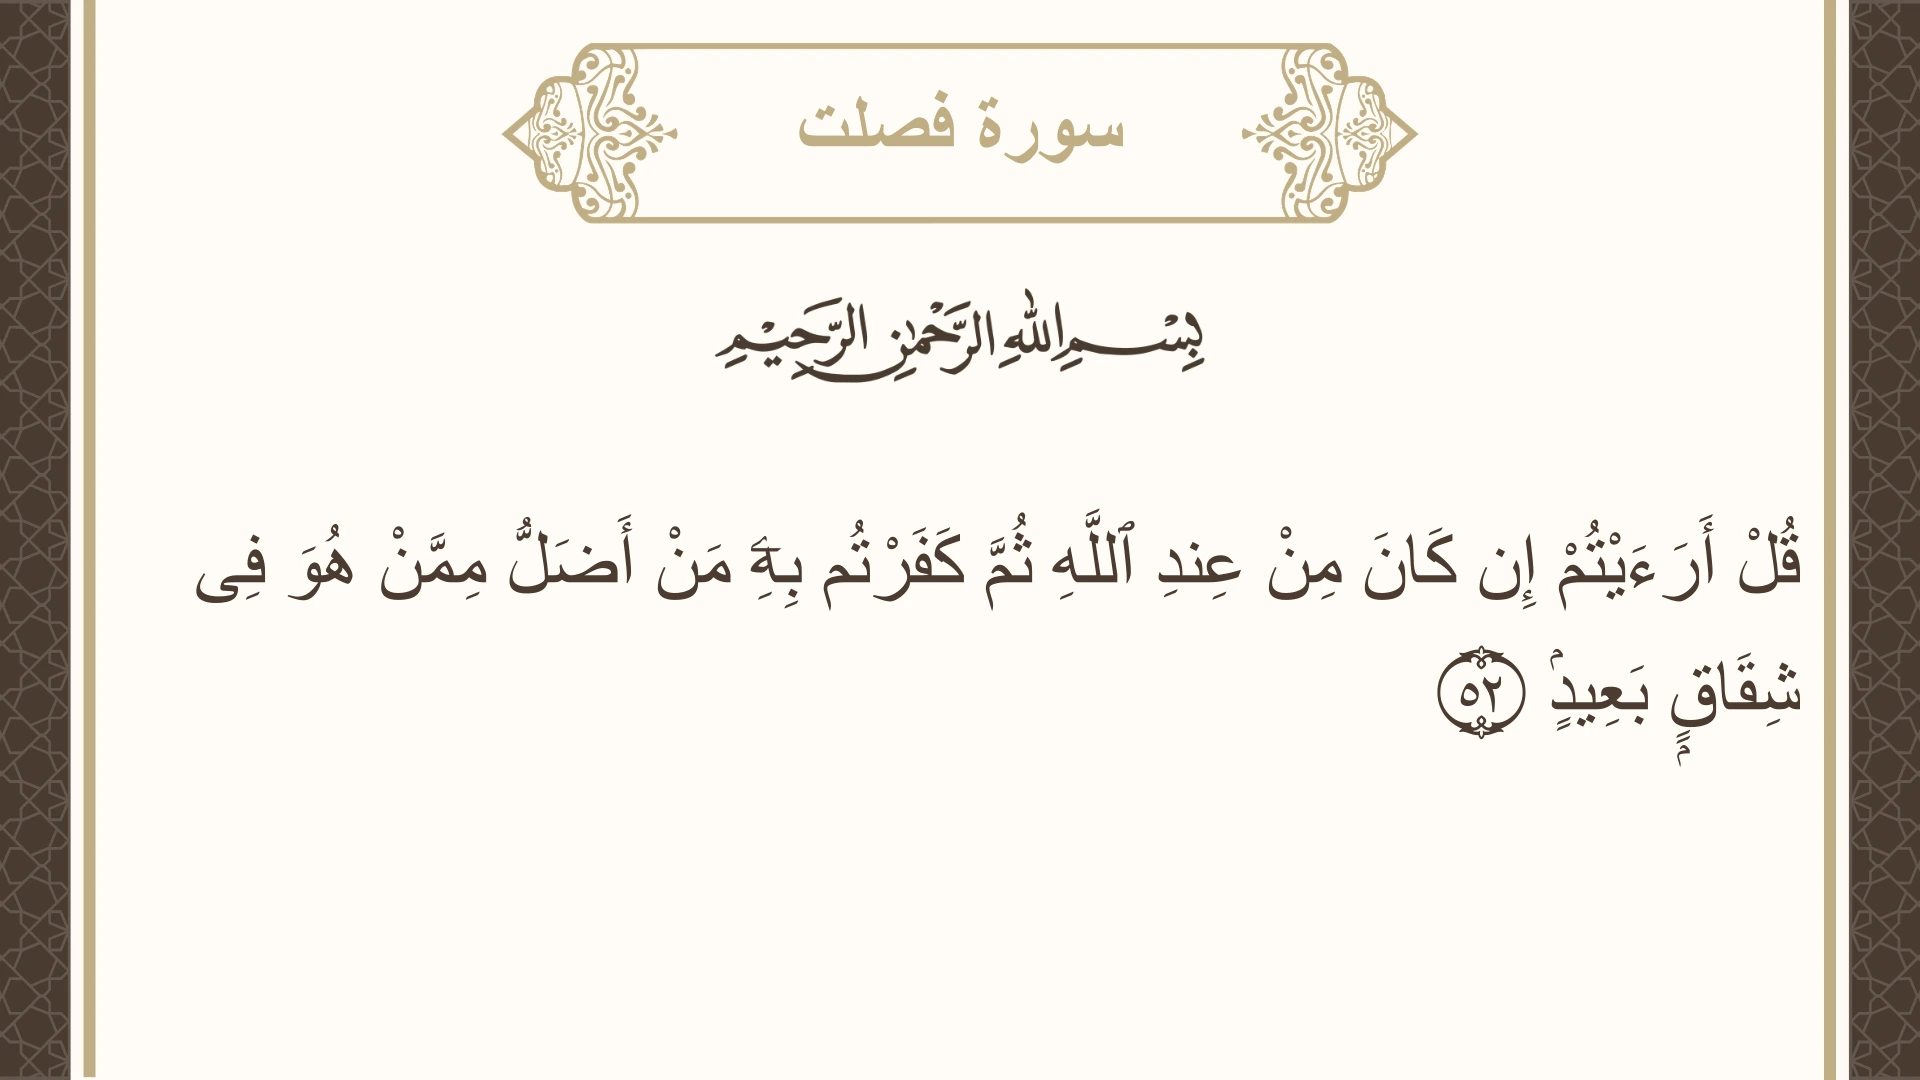 سورة فصلت
بِسْمِ اللهِ الرَّحْمٰنِ الرَّحِيْمِ
قُلْ أَرَءَيْتُمْ إِن كَانَ مِنْ عِندِ ٱللَّهِ ثُمَّ كَفَرْتُم بِهِۦ مَنْ أَضَلُّ مِمَّنْ هُوَ فِى
شِقَاقٍۭ بَعِيدٍۢ ٥٢